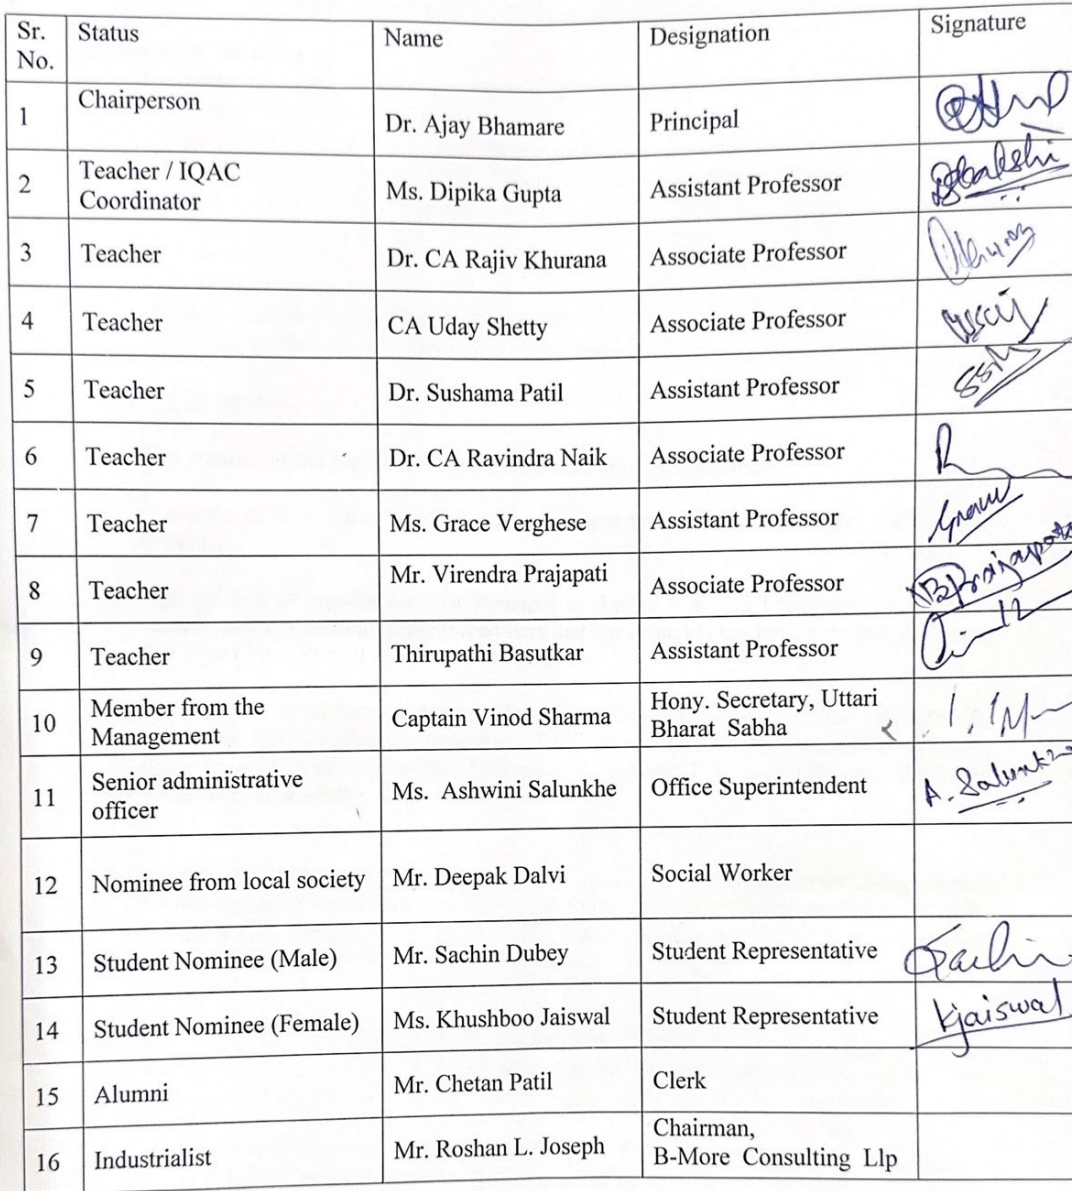 Sr. No. Status Name Designation Signature
1 Chairperson Dr. Ajay Bhamare Principal
2 Teacher / IQAC Coordinator Ms. Dipika Gupta Assistant Professor
3 Teacher Dr. CA Rajiv Khurana Associate Professor
4 Teacher CA Uday Shetty Associate Professor
5 Teacher Dr. Sushama Patil Assistant Professor
6 Teacher Dr. CA Ravindra Naik Associate Professor
7 Teacher Ms. Grace Verghese Assistant Professor
8 Teacher Mr. Virendra Prajapati Associate Professor
9 Teacher Thirupathi Basutkar Assistant Professor
10 Member from the Management Captain Vinod Sharma Hony. Secretary, Uttari Bharat Sabha
11 Senior administrative officer Ms. Ashwini Salunkhe Office Superintendent A. Salunkhe
12 Nominee from local society Mr. Deepak Dalvi Social Worker
13 Student Nominee (Male) Mr. Sachin Dubey Student Representative
14 Student Nominee (Female) Ms. Khushboo Jaiswal Student Representative kjaiswal
15 Alumni Mr. Chetan Patil Clerk
16 Industrialist Mr. Roshan L. Joseph Chairman, B-More Consulting Llp